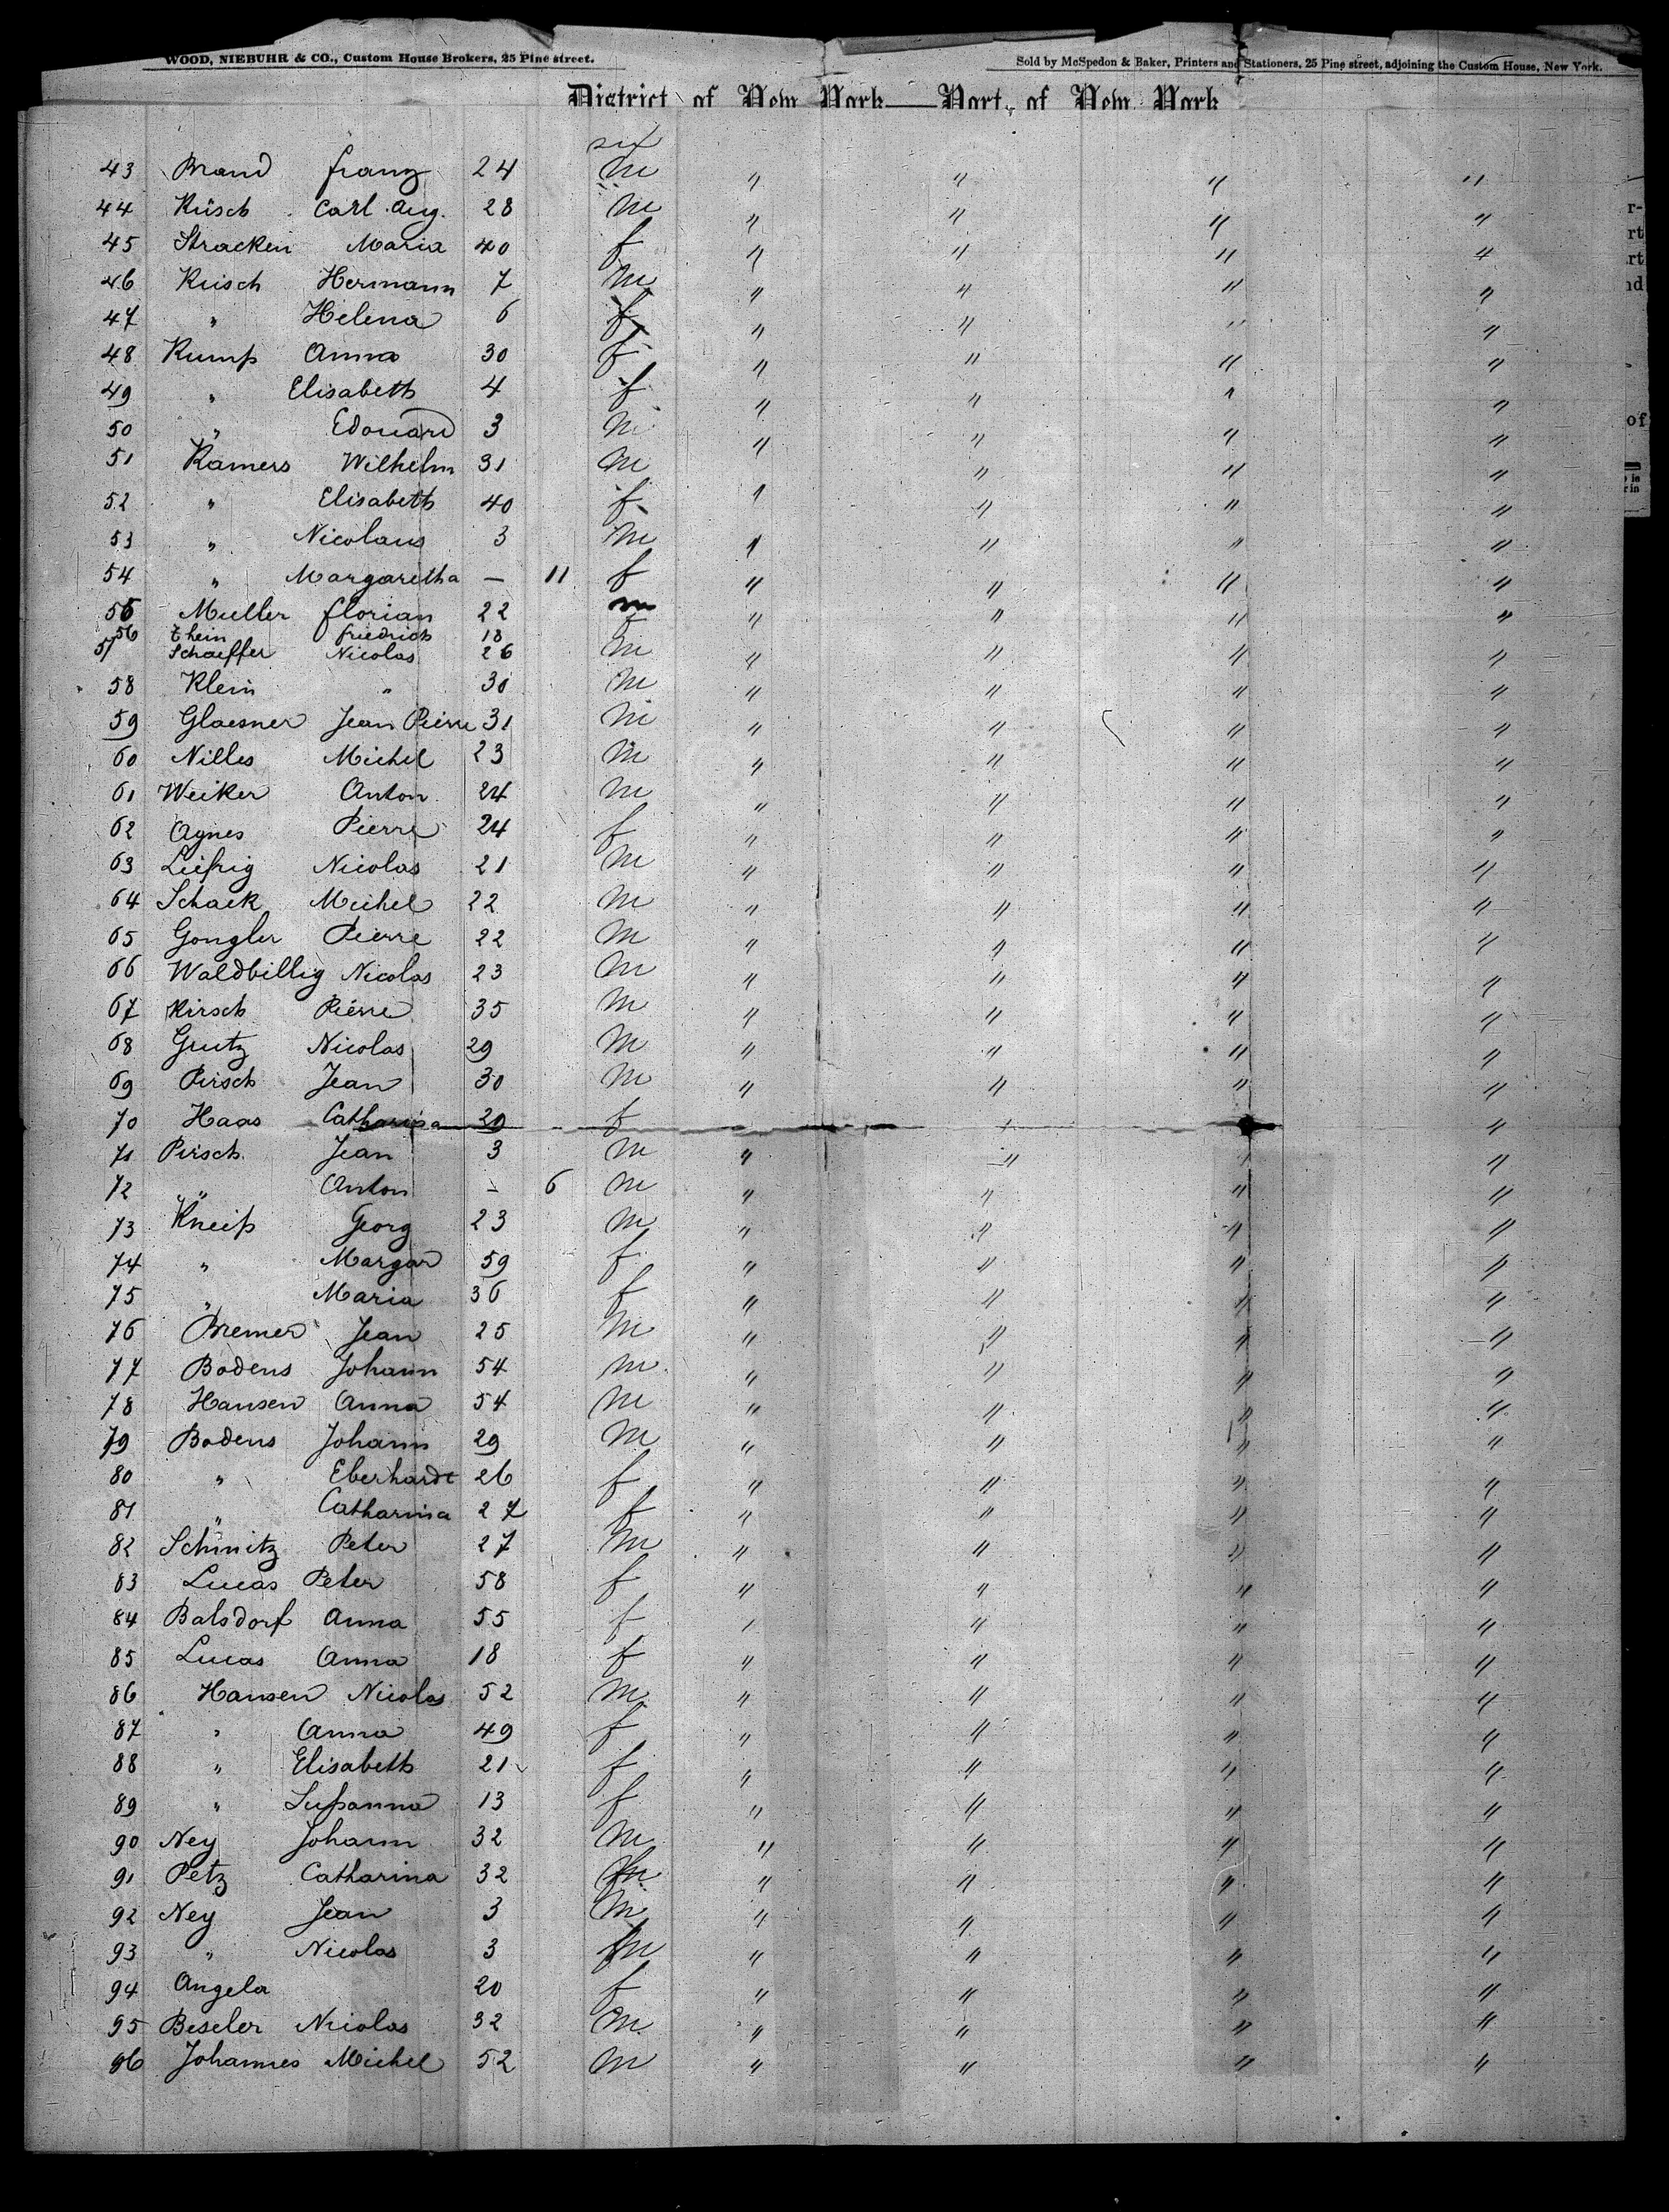 WOOD, NIEBUHR & CO., Custom House Brokers, 25 Pine street. Sold by McSpedon & Baker, Printers and Stationers, 25 Pine street, adjoining the Custom House, New York.
District of New York—Port of New York
sex
43 Brand Franz 24 m " " " "
44 Küsch Carl Aug. 28 m " " " "
45 Stracken Maria 40 f " " " "
46 Küsch Hermann 7 m " " " "
47 " Helena 6 f " " " "
48 Kump Anna 30 f " " " "
49 " Elisabeth 4 f " " " "
50 " Edouard 3 m " " " "
51 Ramers Wilhelm 31 m " " "
52 " Elisabeth 40 f " " " "
53 " Nicolaus 3 m " " " "
54 " Margaretha — 11 f " " " "
55 Muller Florian 22 m " " " "
56 Thein Friedrich 18
57 Schaeffer Nicolas 26 m " " " "
58 Klein " 30 m " " " "
59 Glaesner Jean Pierre 31 m " " " "
60 Nilles Michel 23 m " " " "
61 Weiker Anton 24 m " " " "
62 Agnes Pierre 24 f " " " "
63 Leifrig Nicolas 21 m " " " "
64 Schack Michel 22 m " " " "
65 Gongler Pierre 22 m " " " "
66 Waldbillig Nicolas 23 m " " " "
67 Kirsch Pierre 35 m " " " "
68 Grutz Nicolas 29 m " " " "
69 Pirsch Jean 30 m " " " "
70 Haas Catharina 29 f "
71 Pirsch Jean 3 m " " " "
72 " Anton – 6 m " " " "
73 Kneip Georg 23 m " " " "
74 " Margar 59 f " " " "
75 " Maria 36 f " " " "
76 Bremer Jean 25 m " " " "
77 Bodens Johann 54 m " " " "
78 Hansen Anna 54 m " " " "
79 Bodens Johann 29 m " " " "
80 " Eberhardt 26 f " " " "
81 " Catharina 27 f " " " "
82 Schmitz Peter 27 m " " " "
83 Lucas Peter 58 f " " " "
84 Balsdorf Anna 55 f " " " "
85 Lucas Anna 18 f " " " "
86 Hansen Nicolas 52 m " " " "
87 " Anna 49 f " " " "
88 " Elisabeth 21 f " " " "
89 " Sußanna 13 f " " " "
90 Ney Johann 32 m " " " "
91 Petz Catharina 32 " " " "
92 Ney Jean 3 m " " " "
93 " Nicolas 3 m " " " "
94 Angela 20 f " " " "
95 Beseler Nicolas 32 m " " " "
96 Johannes Michel 52 m " " " "